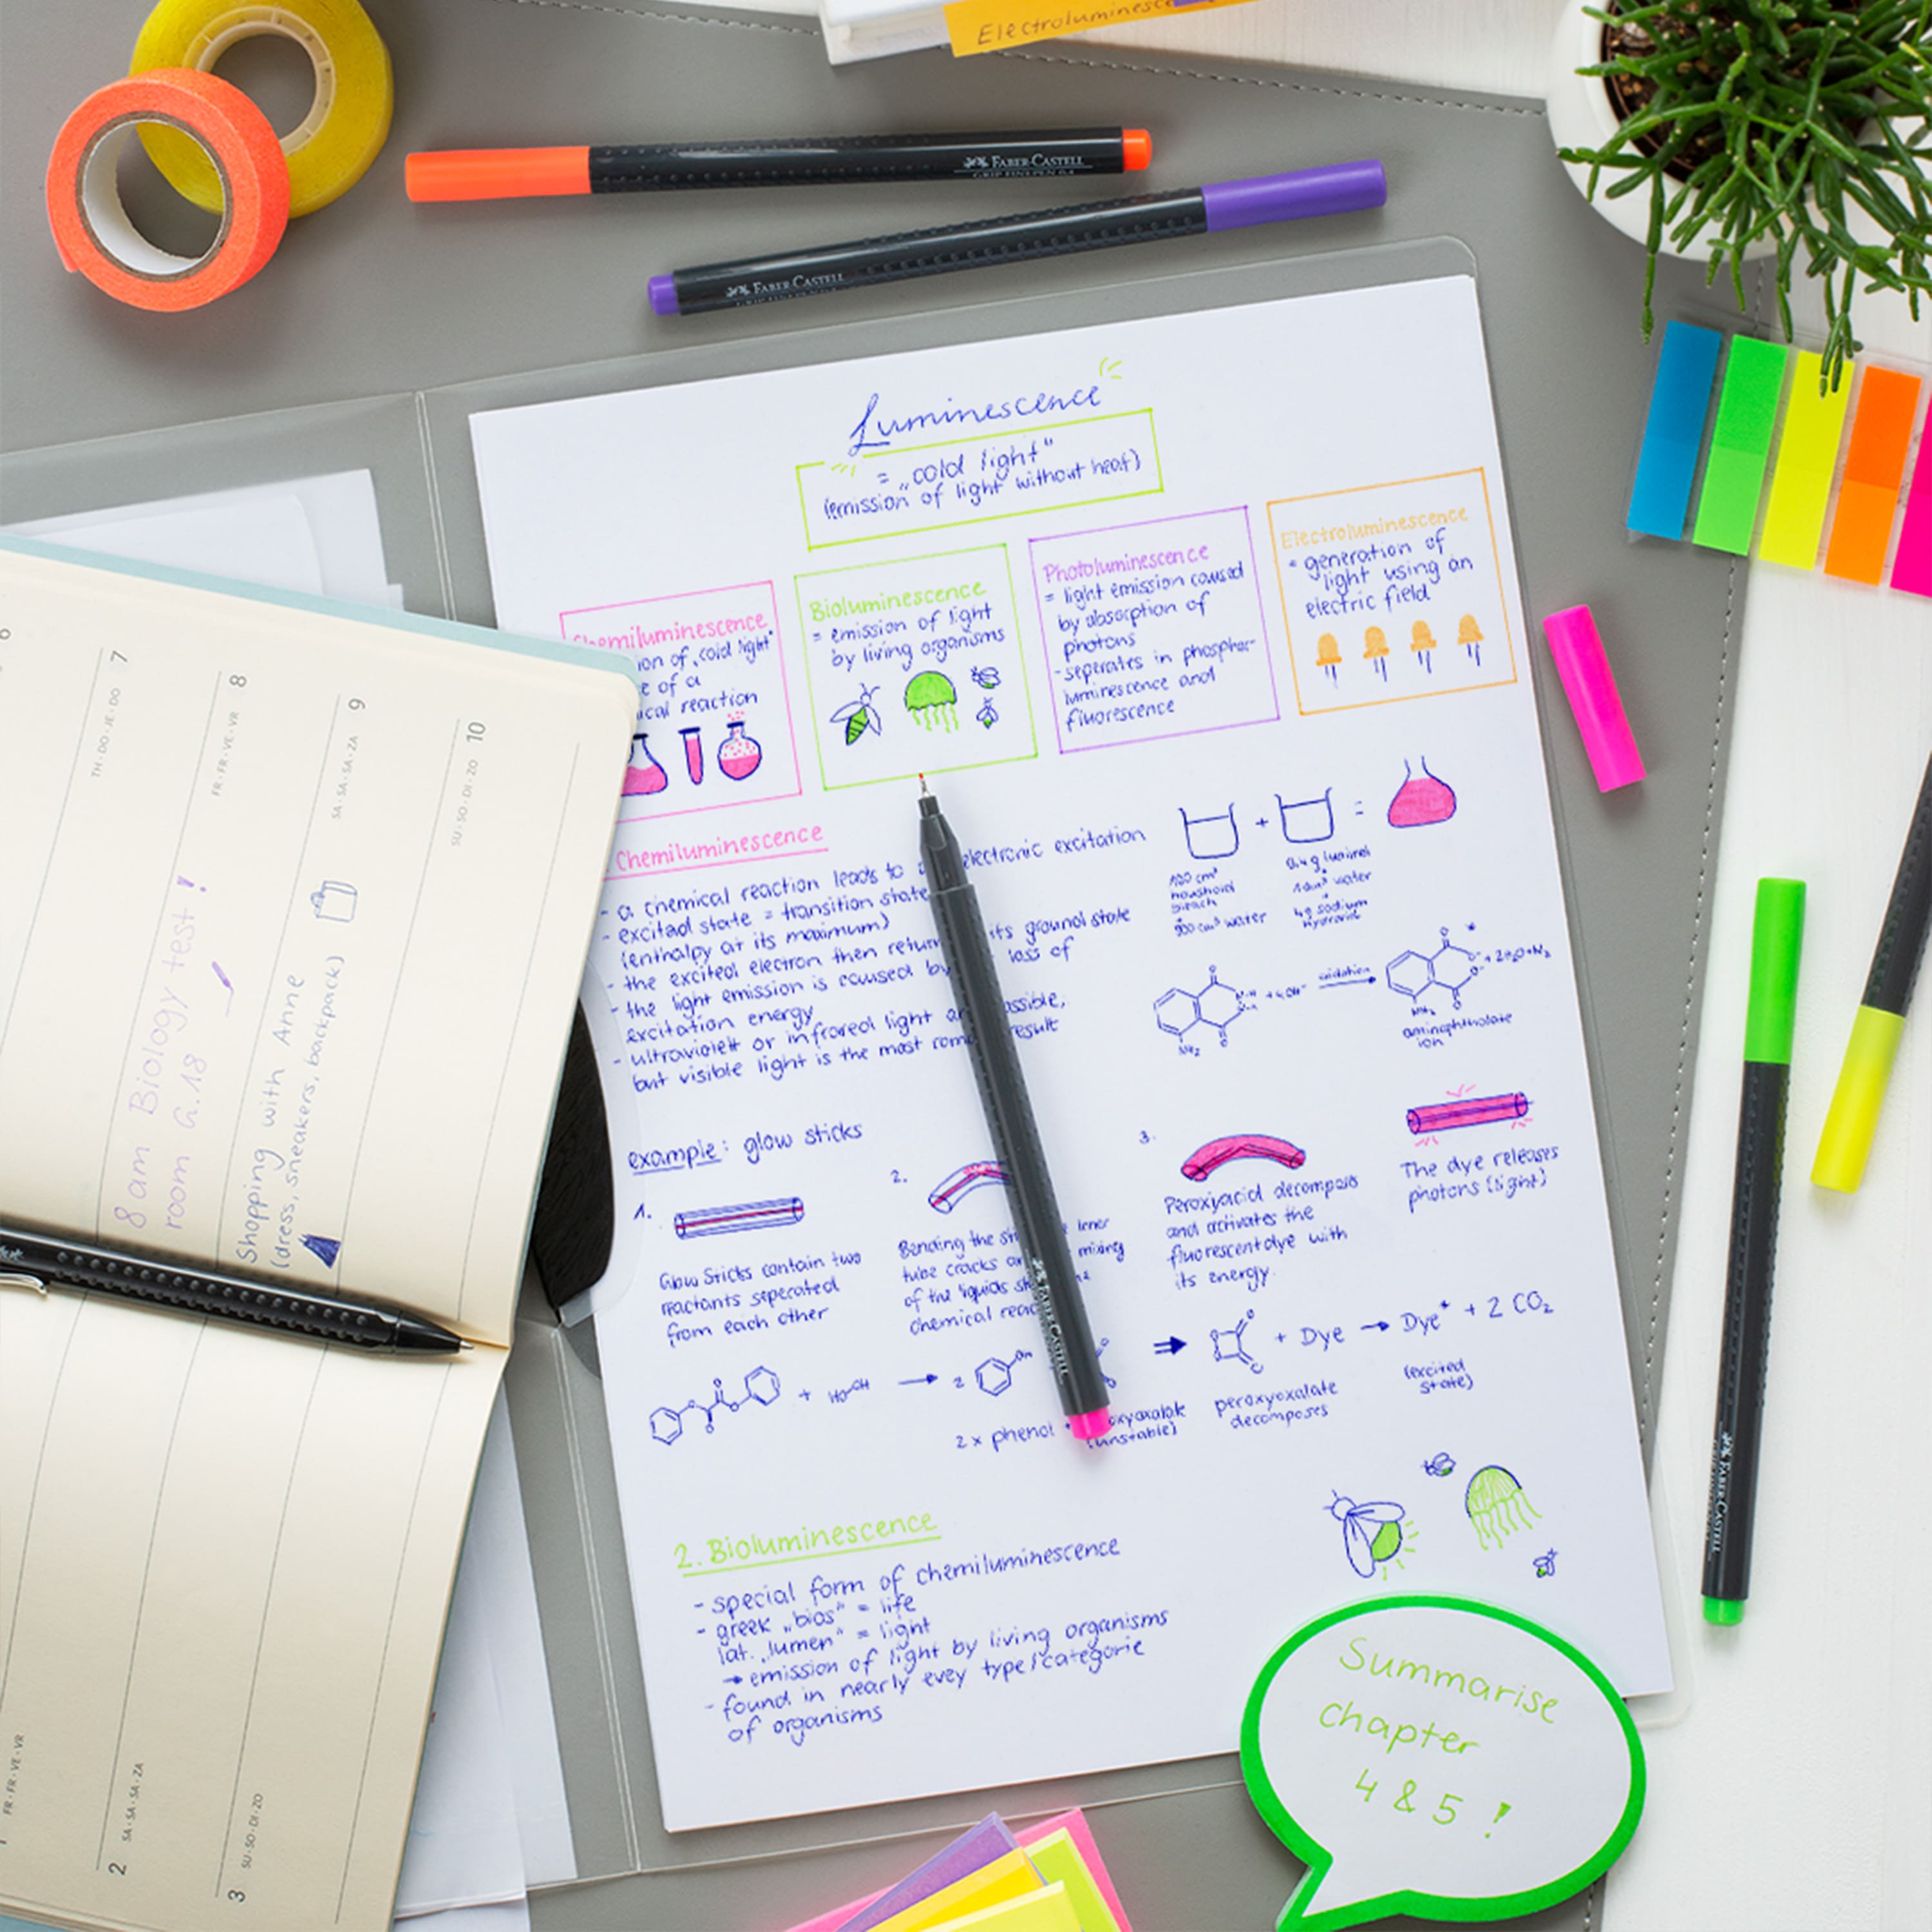 Electroluminesce
FABER-CASTELL
GRIP FINEPEN 0.4
FABER-CASTELL
Luminescence
= „cold light"
(emission of light without heat)
Chemiluminescence
ion of „cold light"
e of a
ical reaction
Bioluminescence
= emission of light
by living organisms
Photoluminescence
= light emission caused
by absorption of
photons
- seperates in phosphor-
luminescence and
fluorescence
Electroluminescence
= generation of
light using an
electric field
Chemiluminescence
- a chemical reaction leads to electronic excitation
- excited state = transition state
(enthalpy at its maximum)
- the excited electron then return its ground state
- the light emission is caused by loss of
excitation energy
- ultraviolett or infrared light a ossible,
but visible light is the most com result
+ =
100 cm³
household
bleach
+
900 cm³ water
0.4 g luminol
+
water
+
4g sodium
hydroxide
NH₂
oxidation
+ 2H₂O + N₂
NH₂
aminophthalate
ion
example: glow sticks
1.
Glow Sticks contain two
reactants seperated
from each other
2.
Bending the sti inner
tube cracks an mixing
of the liquids st
chemical reac
3.
Peroxyacid decomposes
and activates the
fluorescent dye with
its energy.
The dye releases
photons (light)
+ → 2
2 x phenol + oxyoxalate
(unstable)
⇒ + Dye → Dye* + 2 CO₂
peroxyoxalate
decomposes
(excited
state)
2. Bioluminescence
- special form of chemiluminescence
- greek „bios" = life
lat. „lumen" = light
→ emission of light by living organisms
- found in nearly evey type/categorie
of organisms
Summarise
chapter
4 & 5 !
TH · DO · JE · DO 7
FR · FR · VE · VR 8
8 am Biology test!
room G.18
SA · SA · SA · ZA 9
Shopping with Anne
(dress, sneakers, backpack)
SU · SO · DI · ZO 10
FR · FR · VE · VR
2 SA · SA · SA · ZA
3 SU · SO · DI · ZO
FABER-CASTELL
FABER-CASTELL